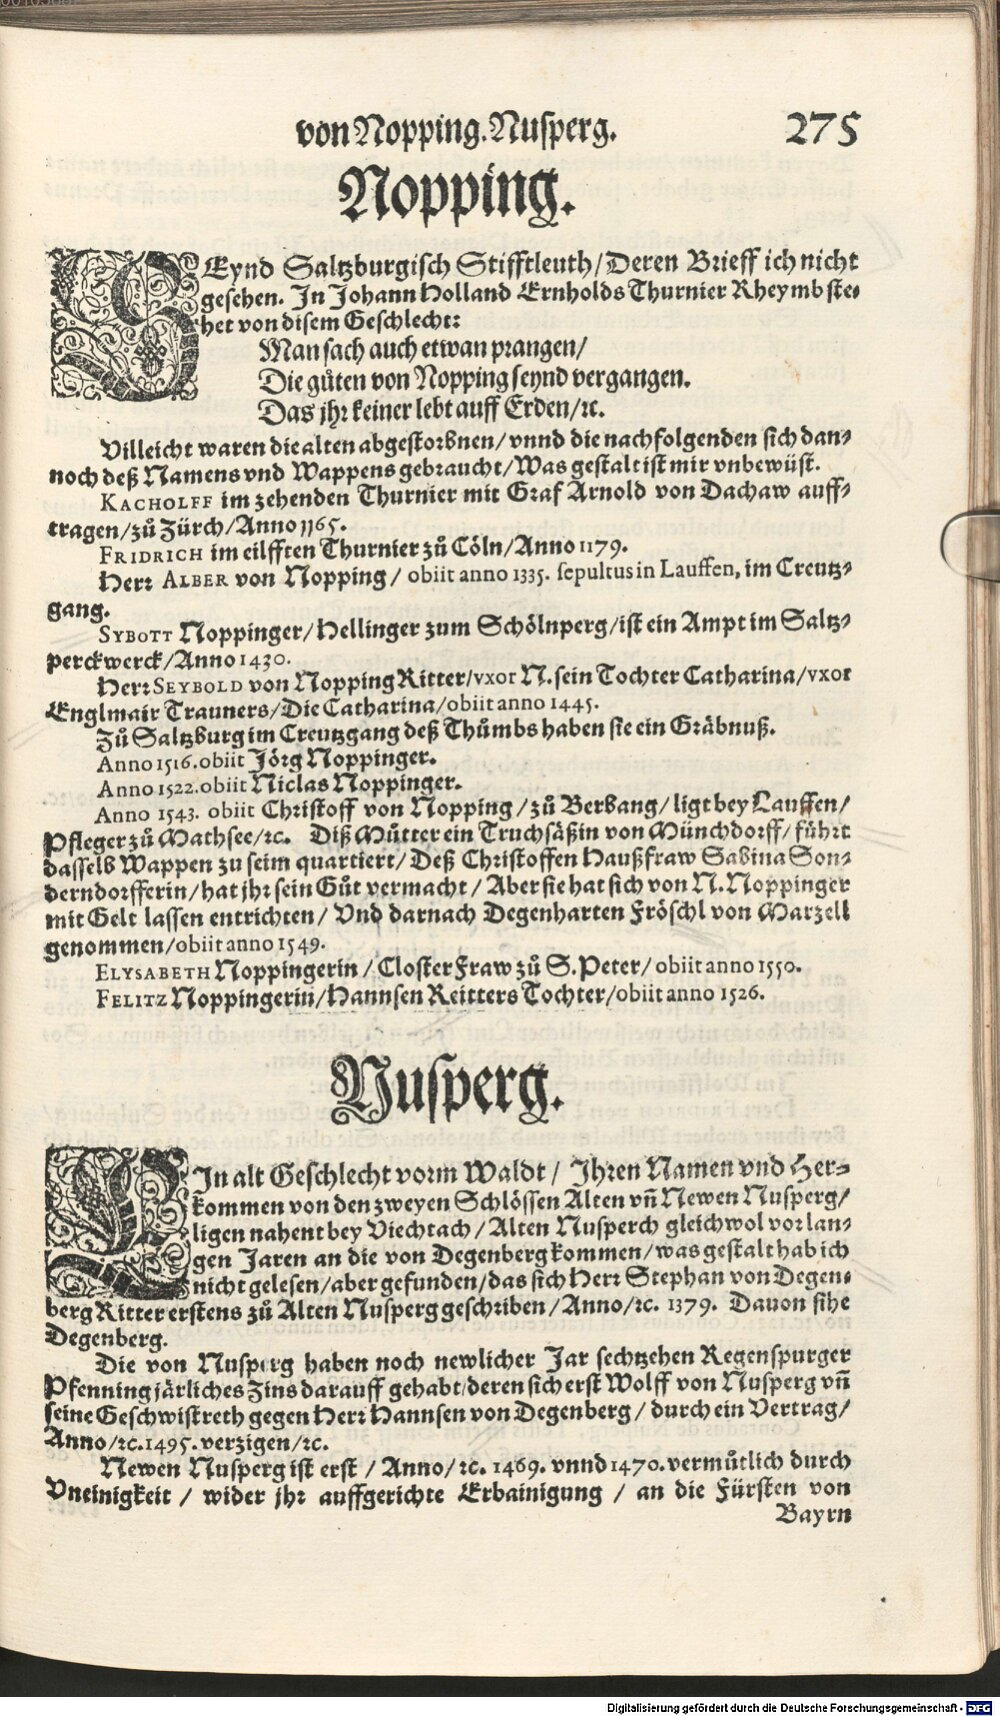 von Nopping. Nusperg. 275
Nopping.
SEynd Saltzburgisch Stifftleuth/Deren Brieff ich nicht
gesehen. In Johann Holland Ernholds Thurnier Rheymb ste-
het von disem Geschlecht:
Man sach auch etwan prangen/
Die guͦten von Nopping seynd vergangen.
Das jhr keiner lebt auff Erden/ꝛc.
Villeicht waren die alten abgestorbnen/vnnd die nachfolgenden sich dan-
noch deß Namens vnd Wappens gebraucht/Was gestalt ist mir vnbewüst.
KACHOLFF im zehenden Thurnier mit Graf Arnold von Dachaw auff-
tragen/zuͦ Zürch/Anno 1165.
FRIDRICH im eilfften Thurnier zuͦ Cöln/Anno 1179.
Herr ALBER von Nopping/ obiit anno 1335. sepultus in Lauffen, im Creutz-
gang.
SYBOTT Noppinger/Hellinger zum Schölnperg/ist ein Ampt im Saltz-
perckwerck/Anno 1430.
Herr SEYBOLD von Nopping Ritter/vxor N. sein Tochter Catharina/vxor
Englmair Trauners/Die Catharina/obiit anno 1445.
Zuͦ Saltzburg im Creutzgang deß Thuͦmbs haben sie ein Gräbnuß.
Anno 1516. obiit Jörg Noppinger.
Anno 1522. obiit Niclas Noppinger.
Anno 1543. obiit Christoff von Nopping/zuͦ Berbang/ligt bey Lauffen/
Pfleger zuͦ Mathsee/ꝛc. Diß Muͦtter ein Truchsäßin von Münchdorff/führt
dasselb Wappen zu seim quartiert/Deß Christoffen Haußfraw Sabina Son-
derndorfferin/hat jhr sein Guͦt vermacht/Aber sie hat sich von N. Noppinger
mit Gelt lassen entrichten/Vnd darnach Degenharten Fröschl von Marzell
genommen/obiit anno 1549.
ELYSABETH Noppingerin/Closter Fraw zuͦ S. Peter/obiit anno 1550.
FELITZ Noppingerin/Hannsen Reitters Tochter/obiit anno 1526.
Nusperg.
EIn alt Geschlecht vorm Waldt/ Jhren Namen vnd Her-
kommen von den zweyen Schlössen Alten vn̄ Newen Nusperg/
ligen nahent bey Viechtach/Alten Nusperch gleichwol vor lan-
gen Jaren an die von Degenberg kommen/was gestalt hab ich
nicht gelesen/aber gefunden/das sich Herr Stephan von Degen-
berg Ritter erstens zuͦ Alten Nusperg geschriben/Anno/ꝛc. 1379. Dauon sihe
Degenberg.
Die von Nusperg haben noch newlicher Jar sechtzehen Regenspurger
Pfenning järliches Zins darauff gehabt/deren sich erst Wolff von Nusperg vn̄
seine Geschwistreth gegen Herr Hannsen von Degenberg/durch ein Vertrag/
Anno/ꝛc. 1495. verzigen/ꝛc.
Newen Nusperg ist erst/Anno/ꝛc. 1469. vnnd 1470. vermuͦtlich durch
Vneinigkeit/wider jhr auffgerichte Erbainigung/an die Fürsten von
Bayrn
Digitalisierung gefördert durch die Deutsche Forschungsgemeinschaft - DFG